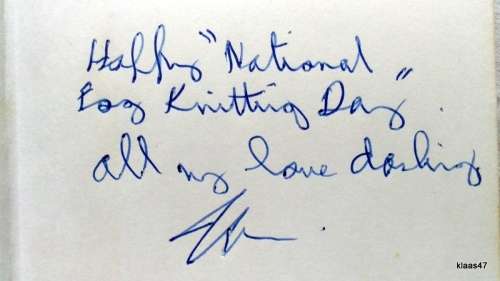 Happy "National
Knitting Day".
all my love darling
klaas47